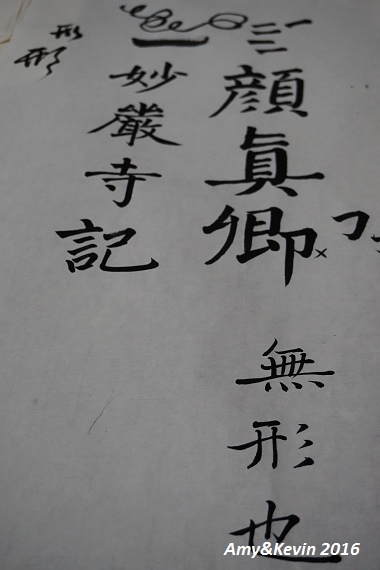 顏真卿
無形也
妙嚴寺記
形形
Amy&Kevin 2016